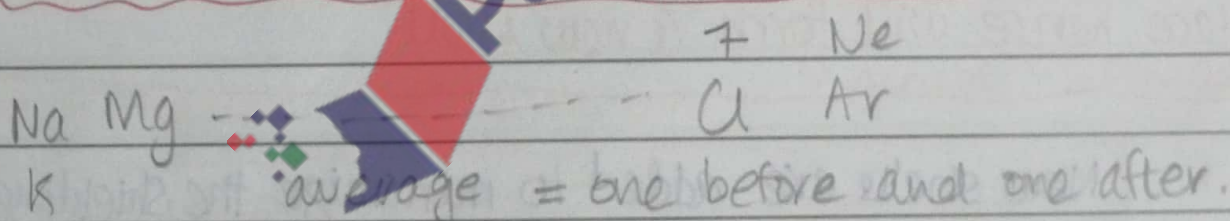 7 Ne
Na Mg - - - - - - - Cl Ar
K average = one before and one after.